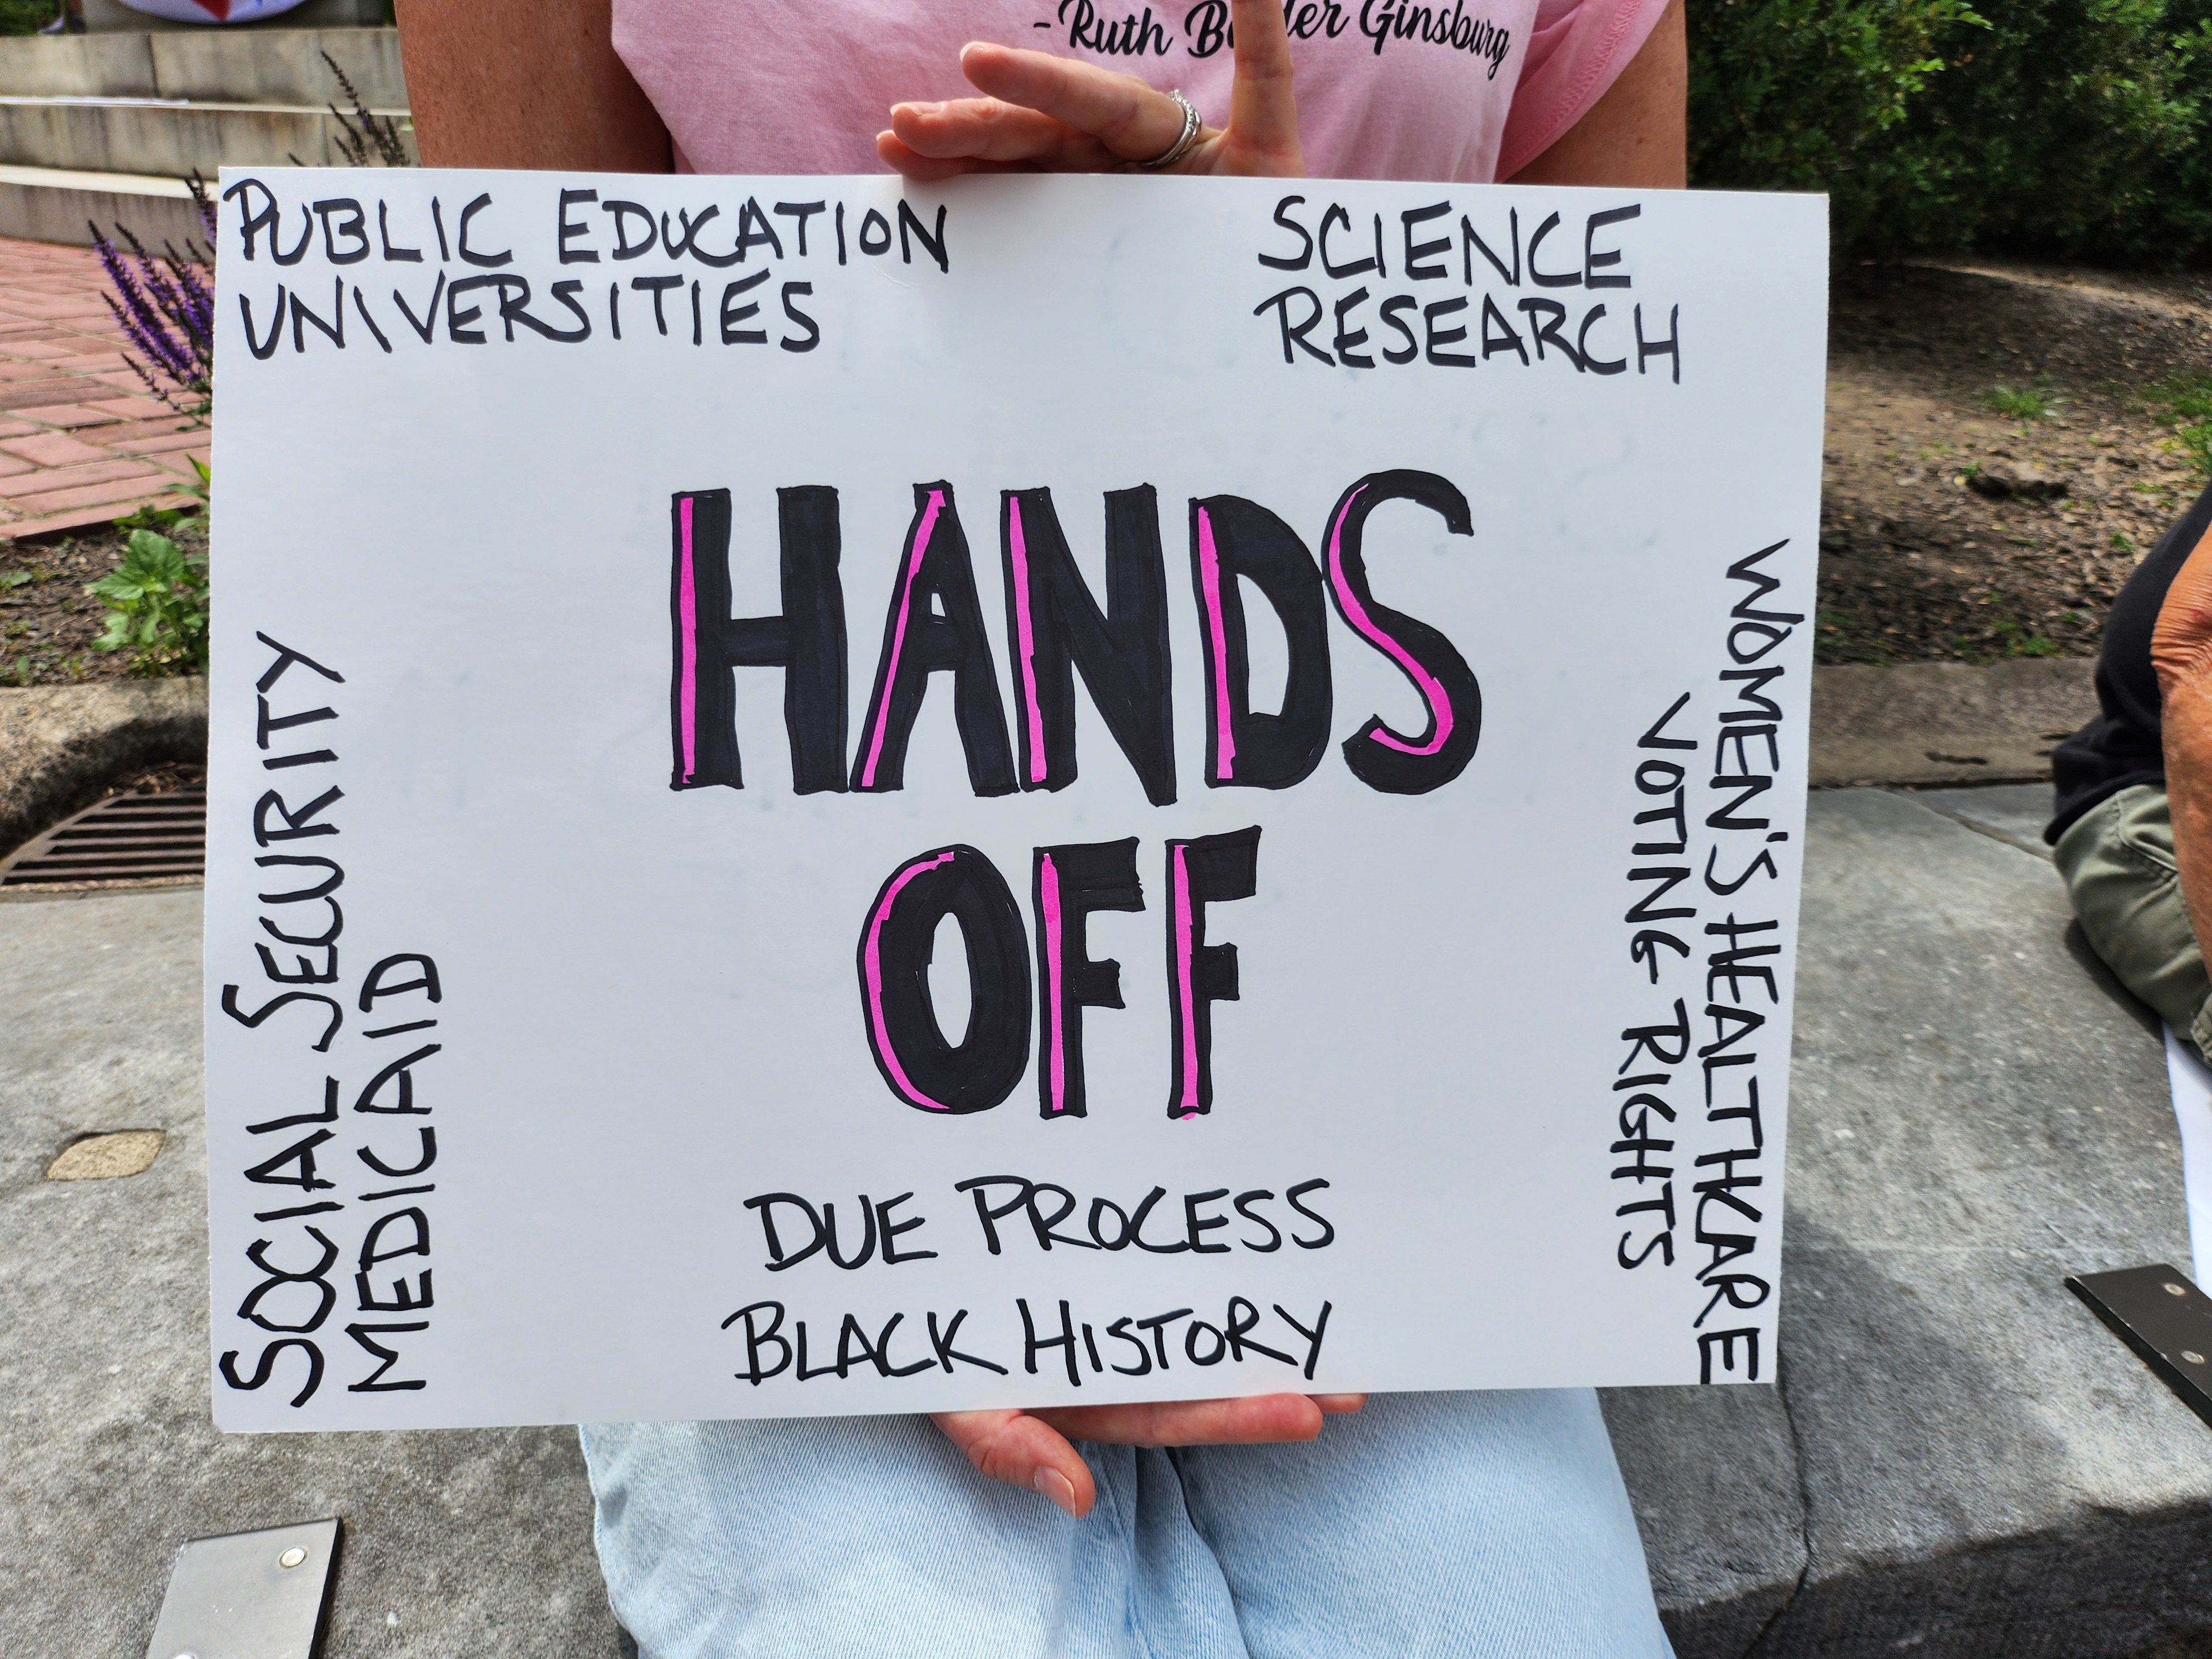 -Ruth Ginsburg
PUBLIC EDUCATION
UNIVERSITIES
SCIENCE
RESEARCH
HANDS
OFF
SOCIAL SECURITY
MEDICAID
WOMEN'S HEALTHKARE
VOTING RIGHTS
DUE PROCESS
BLACK HISTORY